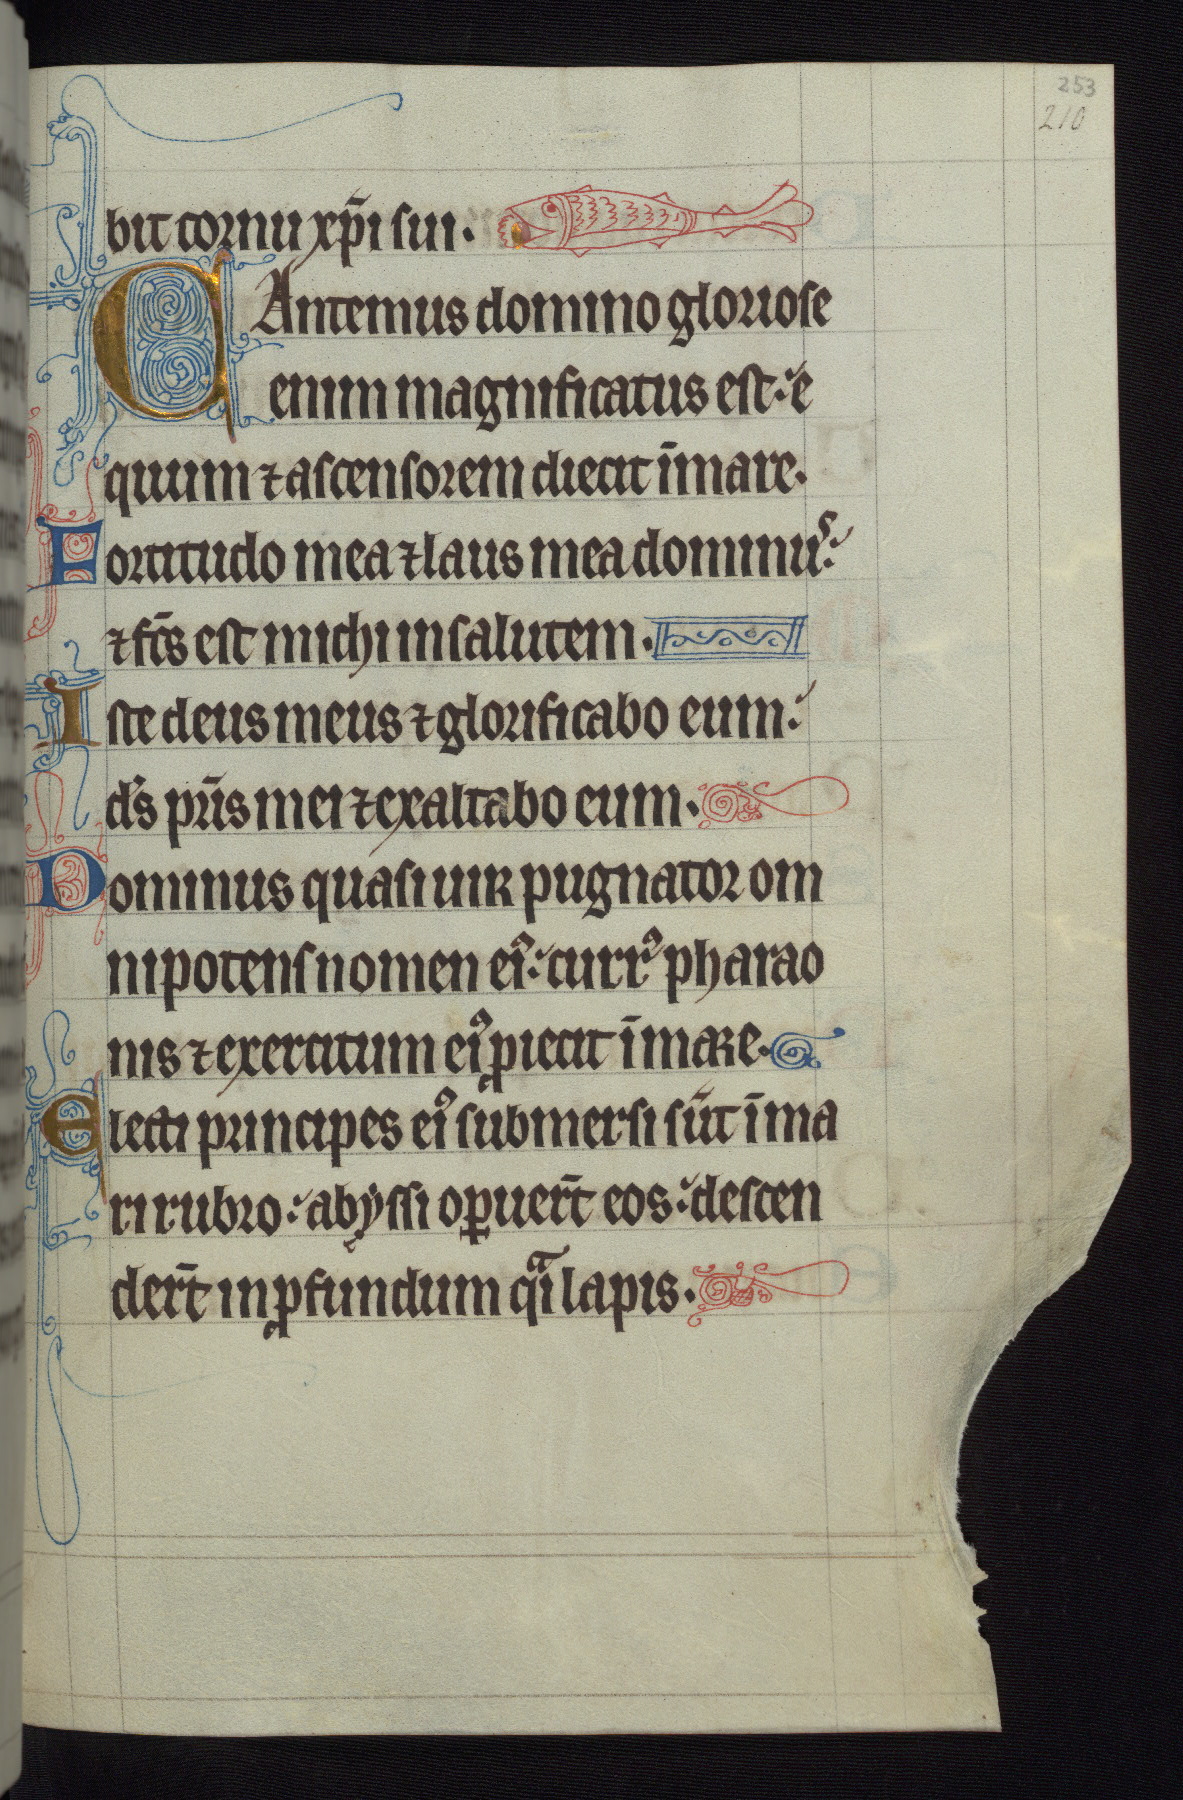 253
210
bit cornu xp̄i sui.
CAntemus domino gloriose
enim magnificatus est: e
quum ⁊ ascensorem diecit ī mare.
Fortitudo mea ⁊ laus mea dominus:
⁊ fc̄s est michi in salutem.
Iste deus meus ⁊ glorificabo eum:
ds̄ pr̄is mei ⁊ exaltabo eum.
Dominus quasi uir pugnator om
nipotens nomen eiꝰ: currꝰ pharao
nis ⁊ exercitum eiꝰ ꝓiecit ī mare.
Electi principes eiꝰ submersi sūt ī ma
ri rubro: abyssi oꝑuer̄t eos: descen
der̄t in ꝓfundum qͣi lapis.